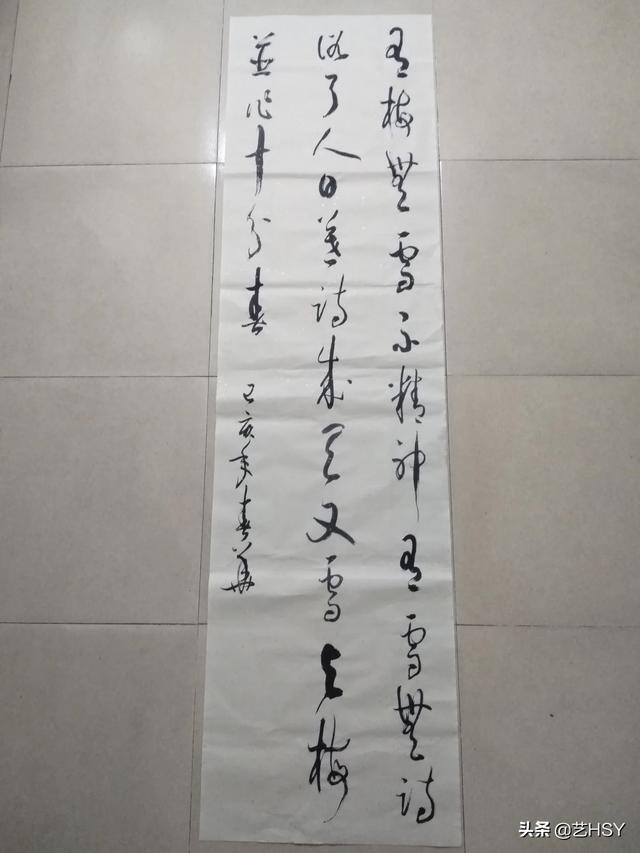 有梅無雪不精神有雪無詩
俗了人日暮詩成天又雪与梅
並作十分春
己亥年春華
头条 @艺HSY